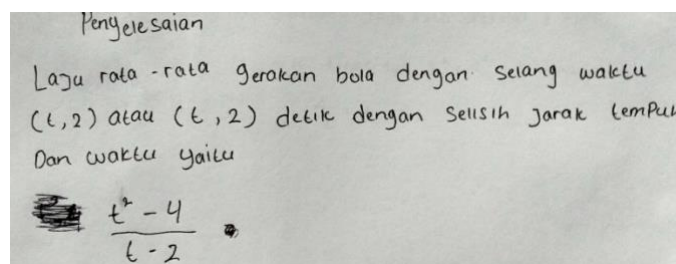 Penyelesaian
Laju rata-rata gerakan bola dengan selang waktu
(t,2) atau (t,2) detik dengan Selisih Jarak tempu
Dan waktu yaitu
t² - 4
t - 2